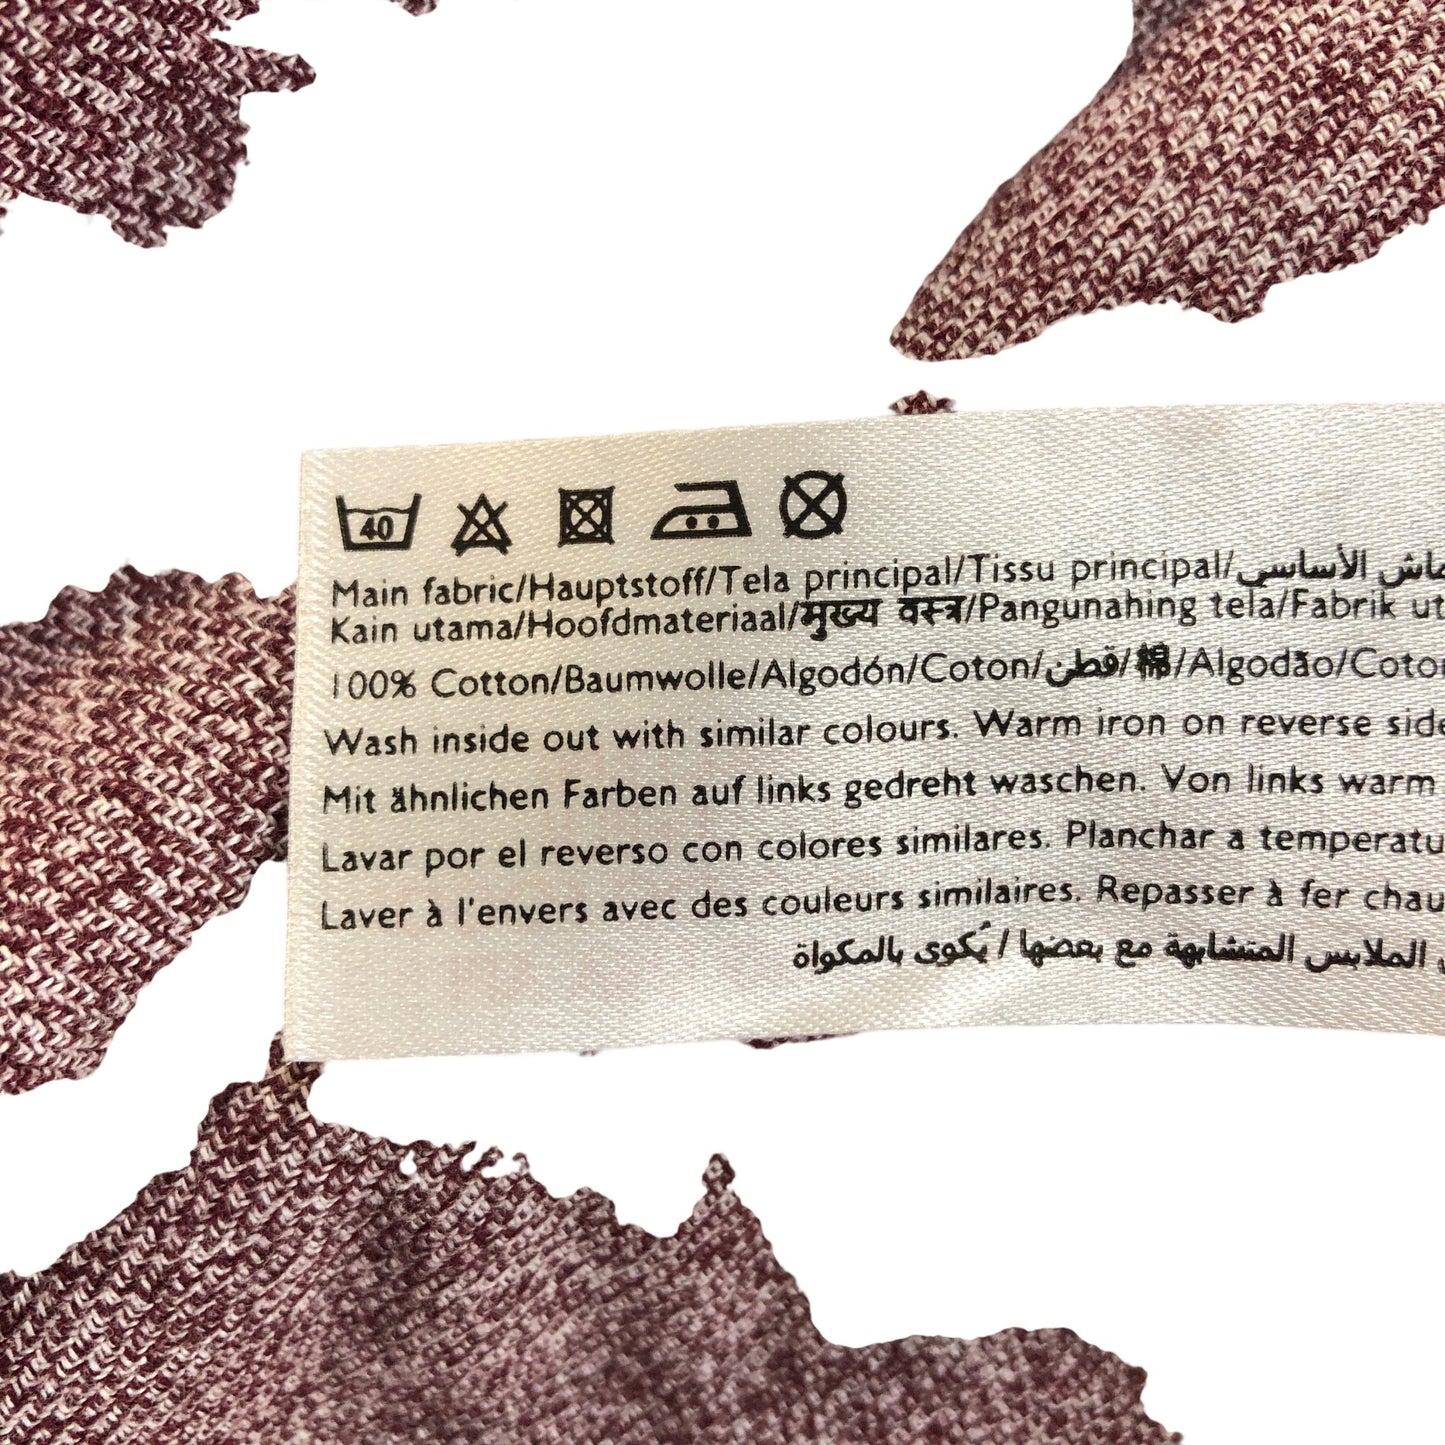 40
Main fabric/Hauptstoff/Tela principal/Tissu principal/الأساسي
Kain utama/Hoofdmateriaal/मुख्य वस्त्र/Pangunahing tela/Fabrik ut
100% Cotton/Baumwolle/Algodón/Coton/قطن/棉/Algodão/Coto
Wash inside out with similar colours. Warm iron on reverse side
Mit ähnlichen Farben auf links gedreht waschen. Von links warm
Lavar por el reverso con colores similares. Planchar a temperatu
Laver à l'envers avec des couleurs similaires. Repasser à fer chau
الملابس المتشابهة مع بعضها / يُكوى بالمكواة